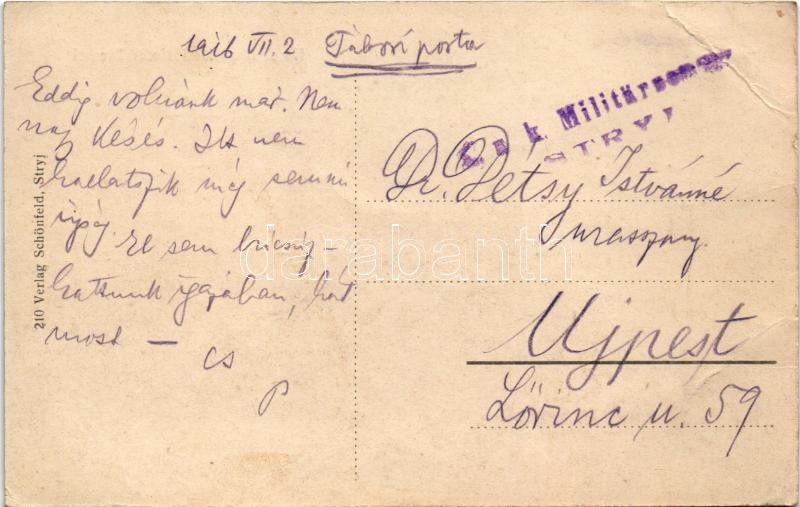 1916 VII. 2 Tábori posta
Eddig volnánk már. Nem
nagy késés. Itt nem
hallatszik még semmi
újság. El sem búcsúz-
hattunk igazában, hát
most — cs
P
210 Verlag Schönfeld, Stryj
K. u. k. Militärzensur
STRYJ
Dr. Pétsy Istvánné
Úrasszony.
Ujpest
Lőrinc u. 59
darabanth